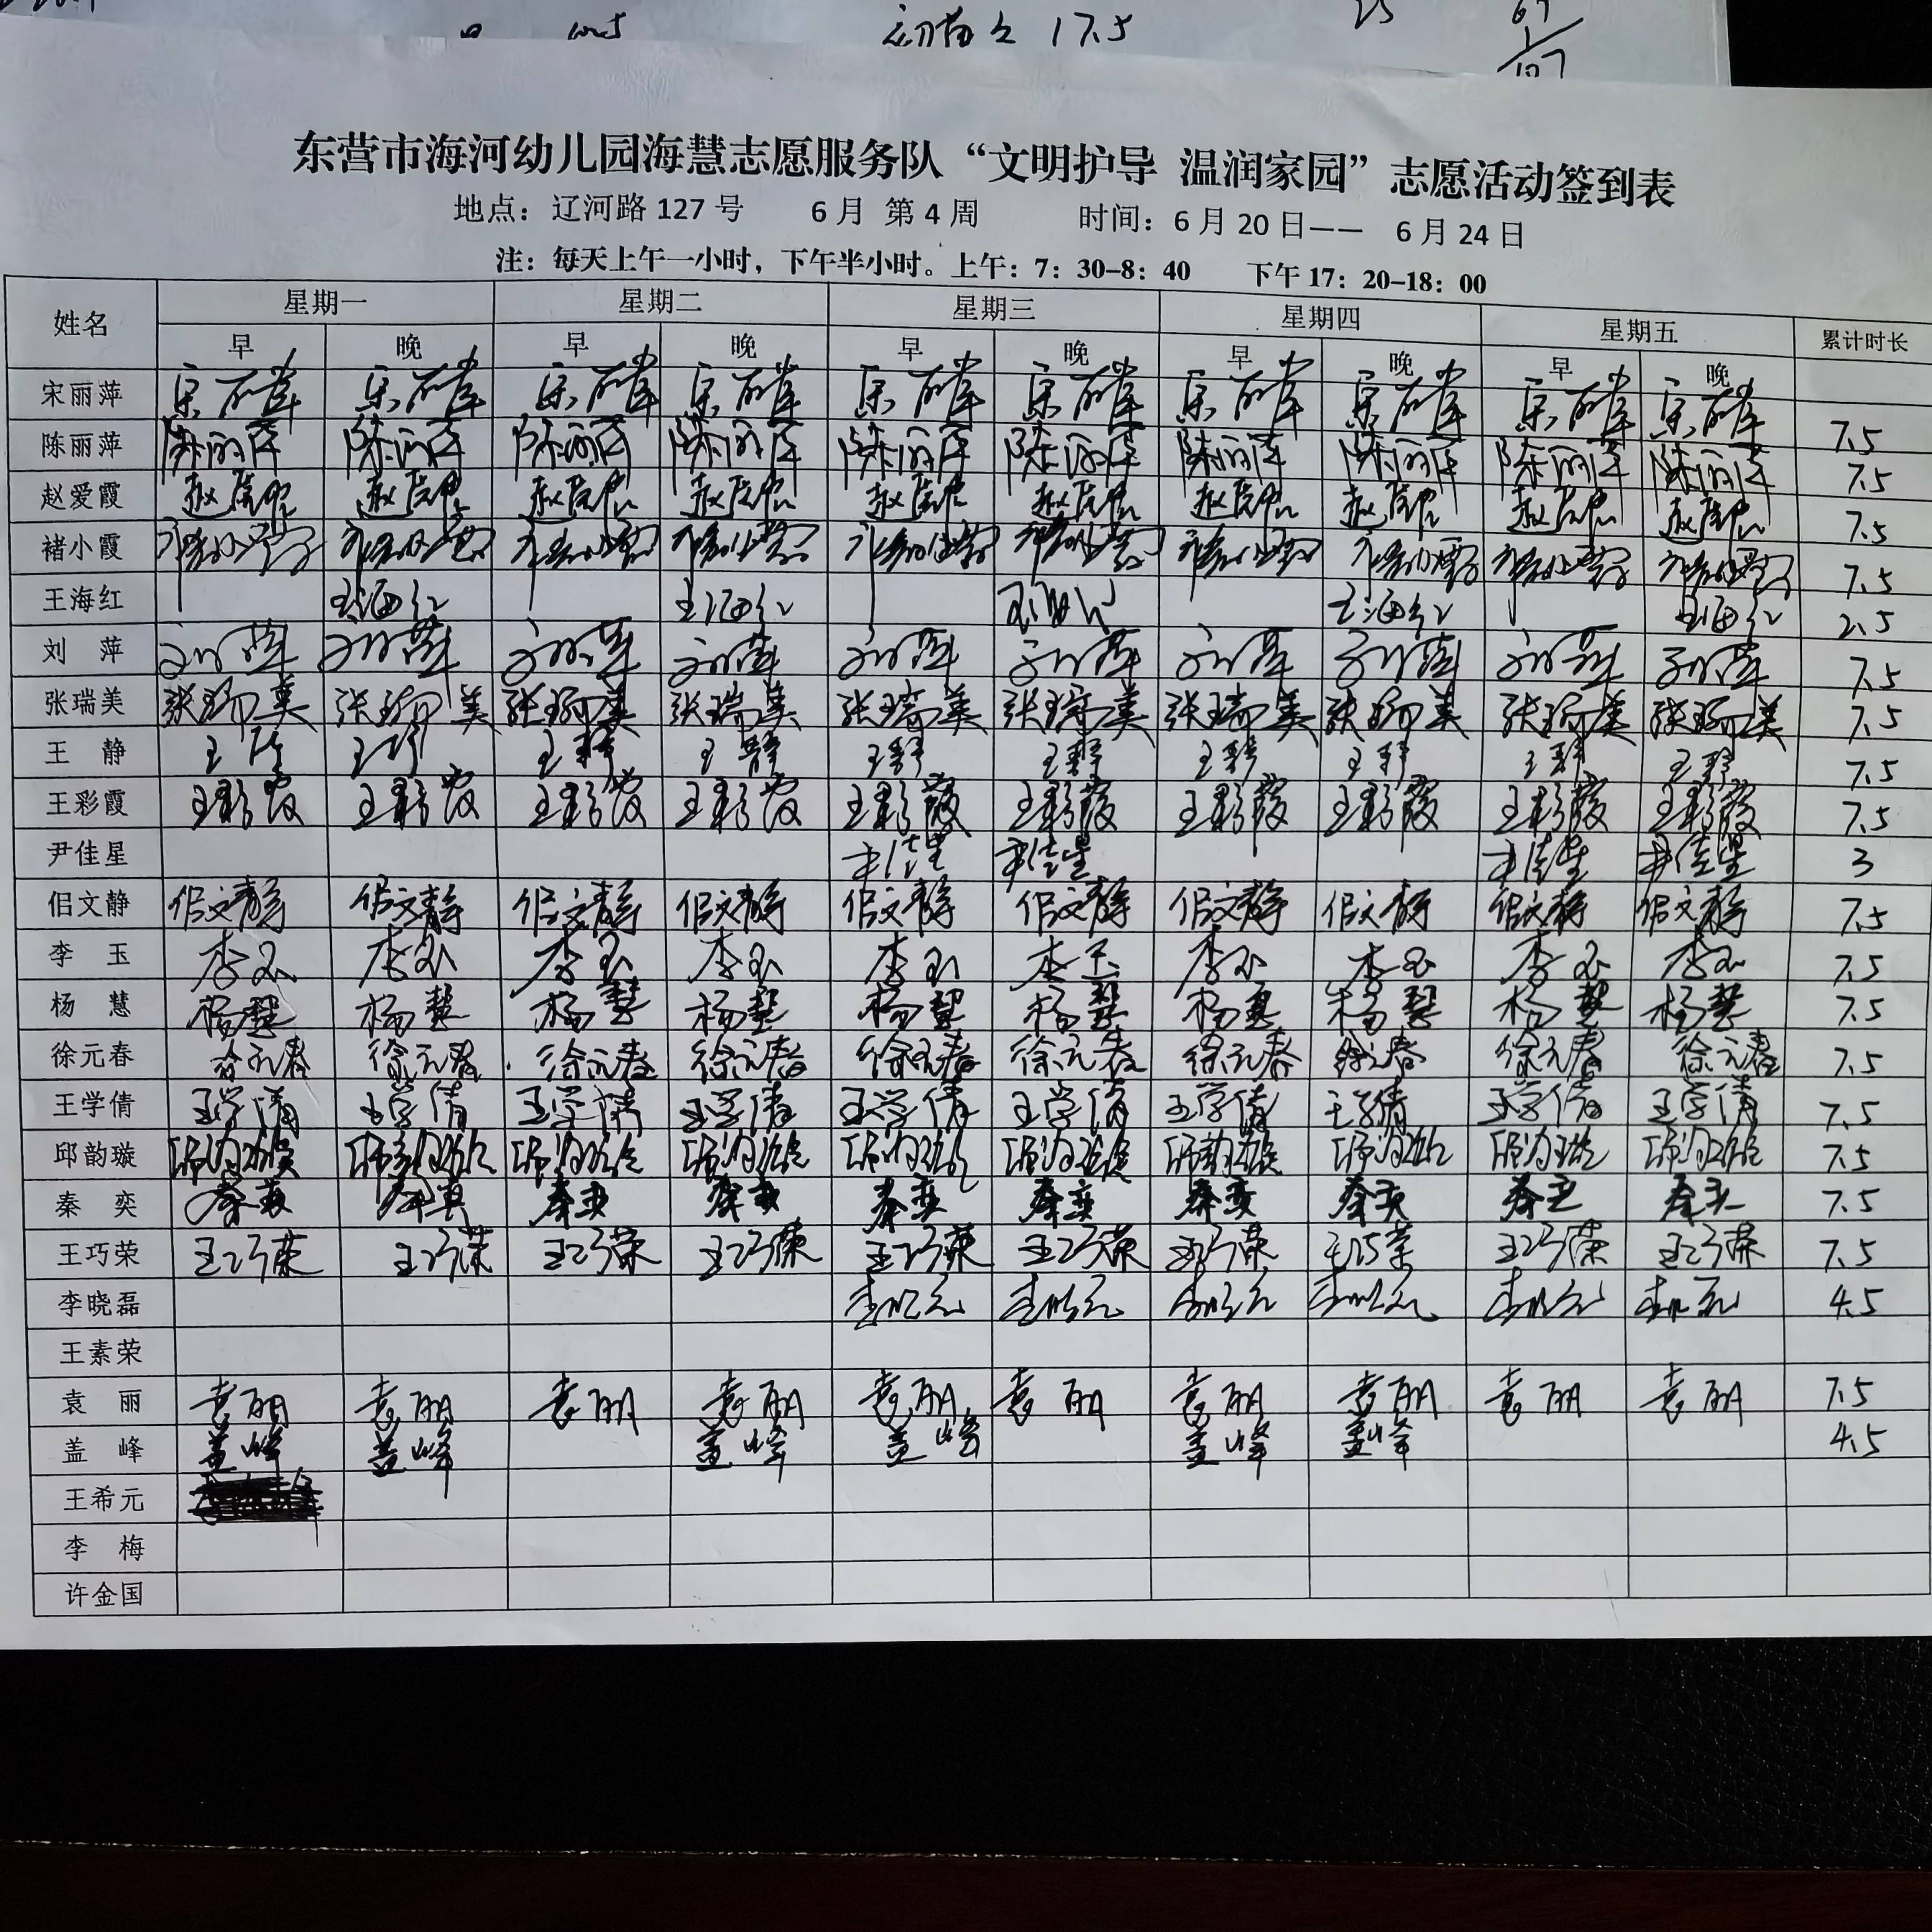 17.5
25
67
107
东营市海河幼儿园海慧志愿服务队“文明护导 温润家园”志愿活动签到表
地点：辽河路 127 号 6 月 第 4 周 时间：6 月 20 日—— 6 月 24 日
注：每天上午一小时，下午半小时。上午：7：30-8：40 下午 17：20-18：00
姓名 星期一 星期二 星期三 星期四 星期五 累计时长
早 晚 早 晚 早 晚 早 晚 早 晚
宋丽萍 宋丽萍 宋丽萍 宋丽萍 宋丽萍 宋丽萍 宋丽萍 宋丽萍 宋丽萍 宋丽萍 宋丽萍 7.5
陈丽萍 陈丽萍 陈丽萍 陈丽萍 陈丽萍 陈丽萍 陈丽萍 陈丽萍 陈丽萍 陈丽萍 陈丽萍 7.5
赵爱霞 赵爱霞 赵爱霞 赵爱霞 赵爱霞 赵爱霞 赵爱霞 赵爱霞 赵爱霞 赵爱霞 赵爱霞 7.5
褚小霞 褚小霞 褚小霞 褚小霞 褚小霞 褚小霞 褚小霞 褚小霞 褚小霞 褚小霞 褚小霞 7.5
王海红 王海红 王海红 王海红 王海红 王海红 2.5
刘 萍 刘萍 刘萍 刘萍 刘萍 刘萍 刘萍 刘萍 刘萍 刘萍 刘萍 7.5
张瑞美 张瑞美 张瑞美 张瑞美 张瑞美 张瑞美 张瑞美 张瑞美 张瑞美 张瑞美 张瑞美 7.5
王 静 王静 王静 王静 王静 王静 王静 王静 王静 王静 王静 7.5
王彩霞 王彩霞 王彩霞 王彩霞 王彩霞 王彩霞 王彩霞 王彩霞 王彩霞 王彩霞 王彩霞 7.5
尹佳星 尹佳星 尹佳星 尹佳星 尹佳星 3
佀文静 佀文静 佀文静 佀文静 佀文静 佀文静 佀文静 佀文静 佀文静 佀文静 佀文静 7.5
李 玉 李玉 李玉 李玉 李玉 李玉 李玉 李玉 李玉 李玉 李玉 7.5
杨 慧 杨慧 杨慧 杨慧 杨慧 杨慧 杨慧 杨慧 杨慧 杨慧 杨慧 7.5
徐元春 徐元春 徐元春 徐元春 徐元春 徐元春 徐元春 徐元春 徐元春 徐元春 徐元春 7.5
王学倩 王学倩 王学倩 王学倩 王学倩 王学倩 王学倩 王学倩 王学倩 王学倩 王学倩 7.5
邱韵璇 邱韵璇 邱韵璇 邱韵璇 邱韵璇 邱韵璇 邱韵璇 邱韵璇 邱韵璇 邱韵璇 邱韵璇 7.5
秦 奕 秦奕 秦奕 秦奕 秦奕 秦奕 秦奕 秦奕 秦奕 秦奕 秦奕 7.5
王巧荣 王巧荣 王巧荣 王巧荣 王巧荣 王巧荣 王巧荣 王巧荣 王巧荣 王巧荣 王巧荣 7.5
李晓磊 李晓磊 李晓磊 李晓磊 李晓磊 李晓磊 李晓磊 4.5
王素荣
袁 丽 袁丽 袁丽 袁丽 袁丽 袁丽 袁丽 袁丽 袁丽 袁丽 袁丽 7.5
盖 峰 盖峰 盖峰 盖峰 盖峰 盖峰 盖峰 4.5
王希元
李 梅
许金国